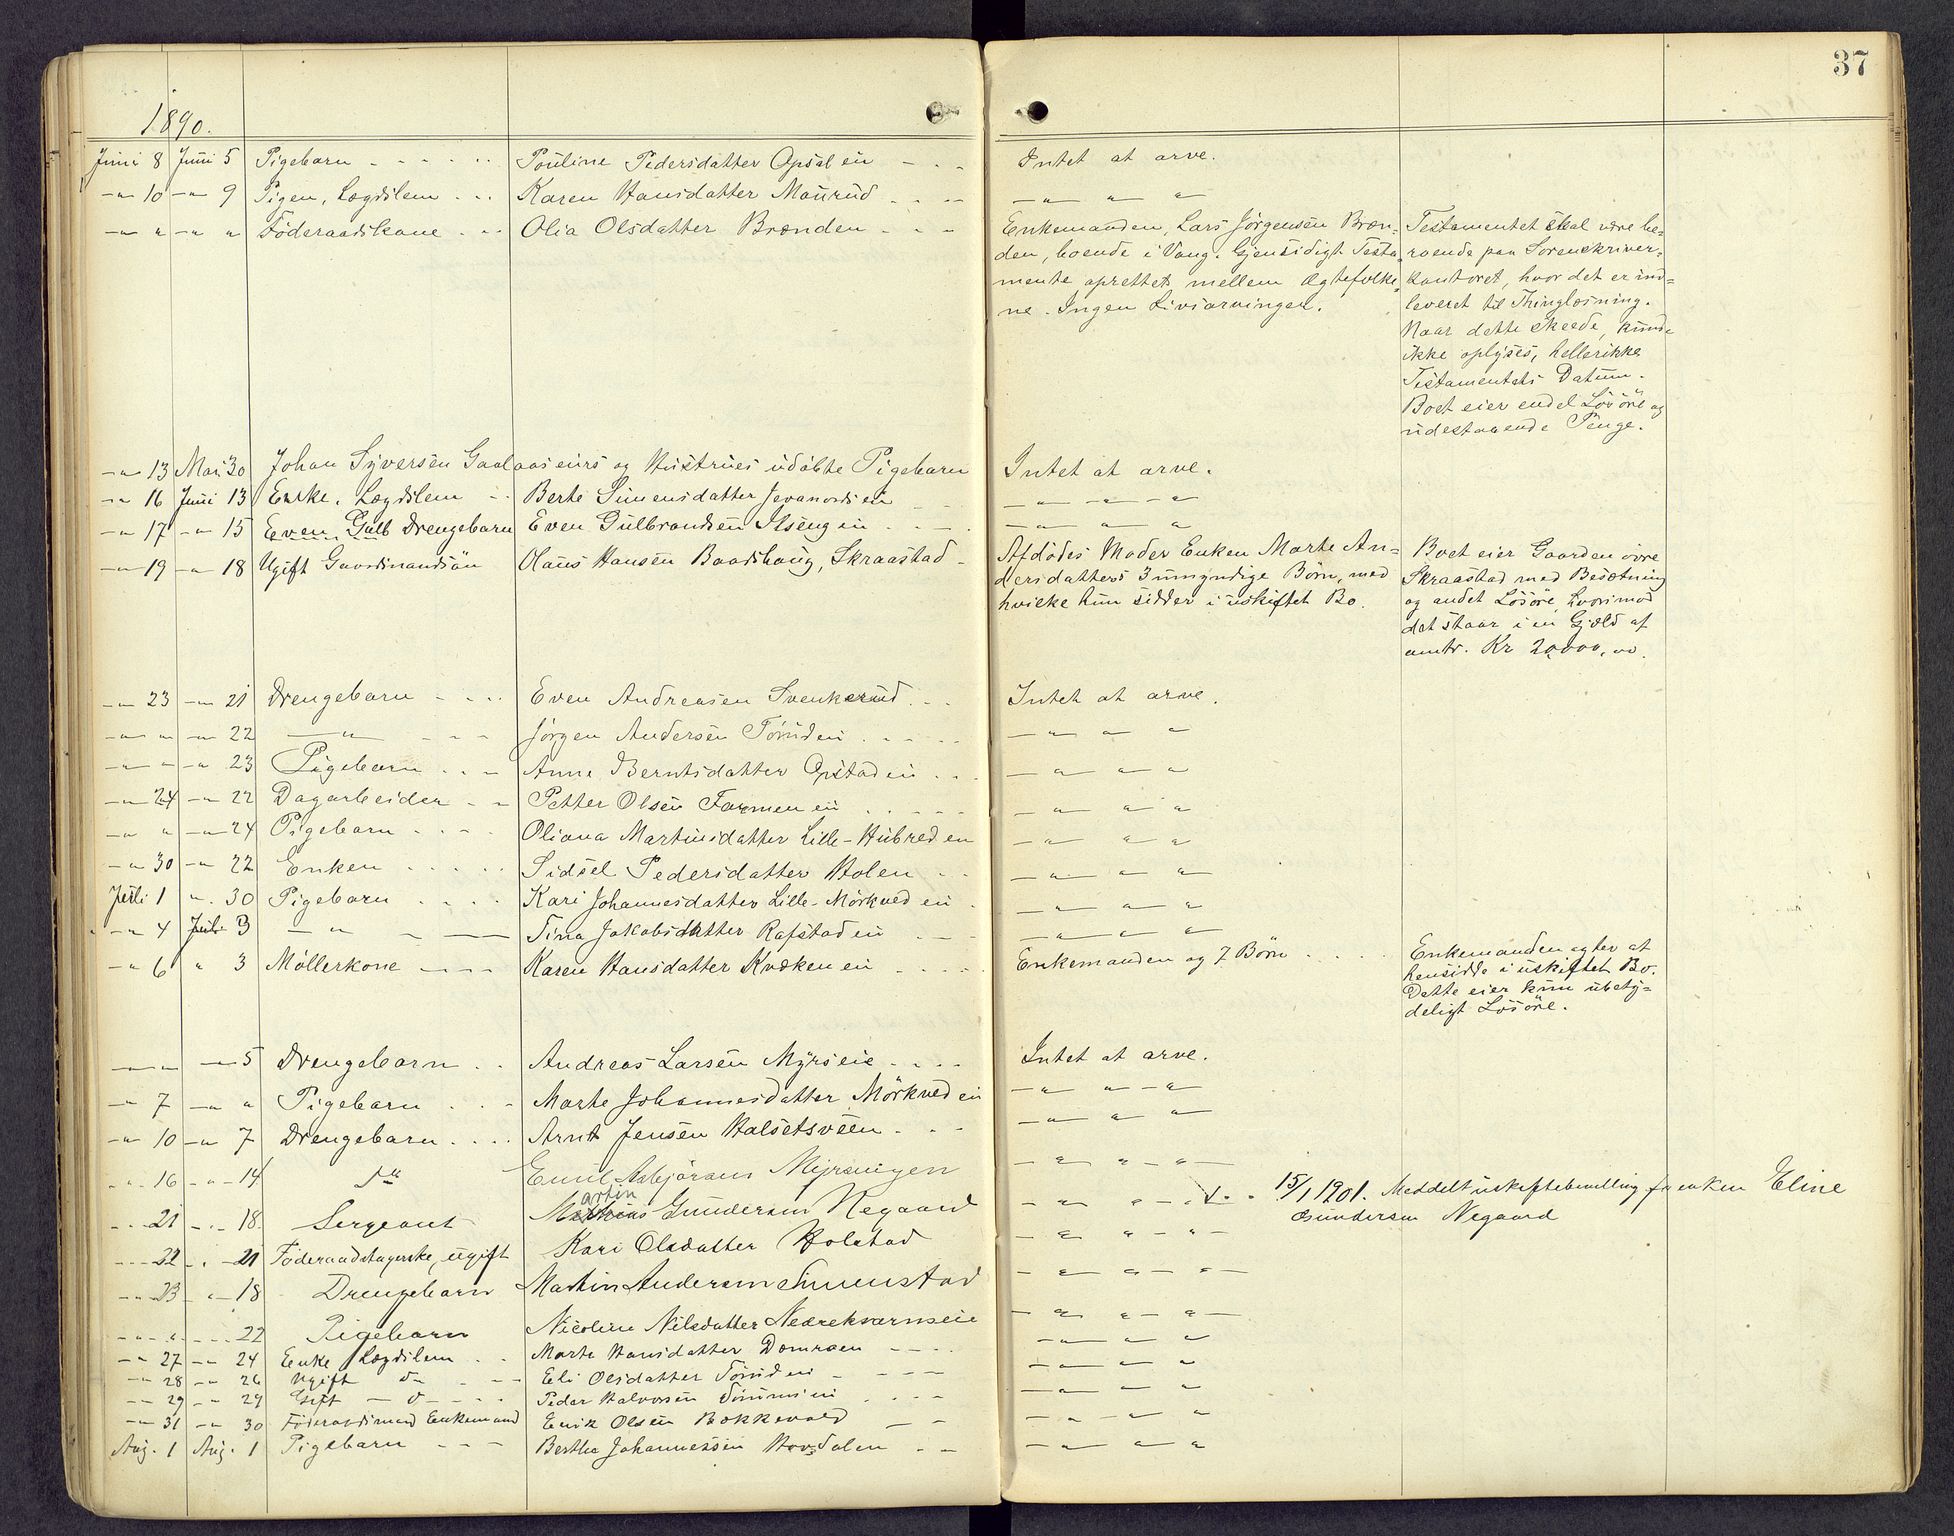 37
1890.
Juni 8 Juni 5 Pigebarn - - - - - Pouline Pedersdatter Opsal eie - - - Intet at arve.
-"- 10 -"- 9 Pigen, Lægdslem - - - Karen Hansdatter Maurud - - - - -"- " "
-"- " -"- " Föderaadskone - - - Olia Olsdatter Brænden - - - Enkemanden, Lars Jørgensen Bræn- Testamentet skal være be-
den, boende i Vang. Gjensidigt Testa- roende paa Sorenskriver-
mente oprettet mellem Ægtefolke- kontoret, hvor det er ind-
ne. Ingen Livsarvinger. leveret til Thinglæsning.
Naar dette skeede, kunde
ikke oplyses, heller ikke
Testamentets Datum.
Boet eier endel Lösöre og
udestaaende Penge.
-"- 13 Mai 30 Johan Syversen Gaalaaseies og Hustrues udöbte Pigebarn Intet at arve.
-"- 16 Juni 13 Enke, Lægdslem - - Berte Simensdatter Jevanordseie -"- " - "
-"- 17 -"- 15 Even Gulb Drengebarn Even Gulbrandsen Ilseng eie - - - -"- " "
-"- 19 -"- 18 Ugift Gaardmandssön Olaus Hansen Baadshaug, Skraastad - Afdödes Moder Enken Marte An- Boet eier Gaarden övre
dersdatters 3 umyndige Børn, med Skraastad med Besætning
hvilke hun sidder i uskiftet Bo. og andet Lösöre, hvorimod
det staar i en Gjæld af
omtr. Kr 20,000,00.
-"- 23 -"- 21 Drengebarn - - - - Even Andreasen Svenkerud - - - Intet at arve.
-"- " -"- 22 -"- - - - Jörgen Andersen Tömden - - - - -"- " "
-"- " -"- 23 Pigebarn - - - Anne Berntsdatter Opstad eie - - - -"- " "
-"- 24 -"- 22 Dagarbeider - - - Petter Olsen Farmen eie - - - - -"- " "
-"- " -"- 24 Pigebarn - - - - Oliana Martinsdatter Lille-Hubred eie -"- " "
-"- 30 -"- 22 Enken - - - - - Sidsel Pedersdatter Holen - - -"- " "
Juli 1 -"- 30 Pigebarn - - - - Kari Johannesdatter Lille-Mörkved eie - -"- " "
-"- 4 Juli 3 -"- - - Tina Jakobsdatter Rafstad eie - - - -"- " "
-"- 6 " 3 Möllerkone - - - - Karen Hansdatter Kvæken eie - - - - Enkemanden og 7 Börn - - - - - Enkemanden agter at
hensidde i uskiftet Bo.
Dette eier kun ubety-
deligt Lösöre.
-"- " -"- 5 Drengebarn - - Andreas Larsen Myrseie - - - - Intet at arve.
-"- 7 -"- " Pigebarn - - - Marte Johannesdatter Mörkved eie -"- " - "
-"- 10 -"- 7 Drengebarn - - - - Arnt Jensen Halsetsveen - - - -"- " "
-"- 16 -"- 14 do Emil Asbjörnsen Myrvangen -"- " - "
-"- 21 -"- 18 Sergeant Martin Gundersen Negaard -"- " - " 15/1 1901. Meddelt uskiftebevilling for enken Eline
Gundersen Negaard
-"- 22 -"- 21 Föderaadstagerske, ugift Kari Olsdatter Holstad -"- " - "
-"- 23 -"- 18 Drengebarn Martin Andersen Simenstad -"- " - "
-"- " -"- 22 Pigebarn Nicoline Nilsdatter Nedrekværnseie -"- " - "
-"- 27 -"- 24 Enke Lægdslem - - Marte Hansdatter Domraen - - - - -"- " "
-"- 28 -"- 26 Ugift do - - - Eli Olsdatter Tömden - - - - -"- " "
-"- 29 -"- 29 Gift - do - - - - Peder Halvorsen eie - - - -"- " "
-"- 31 -"- 30 Föderaadsmand Enkemand Erik Olsen Bækkevold - - -"- " "
Aug. 1 Aug. 1 Pigebarn - - - Berthe Johannessen Hovdalen - - -"- " "